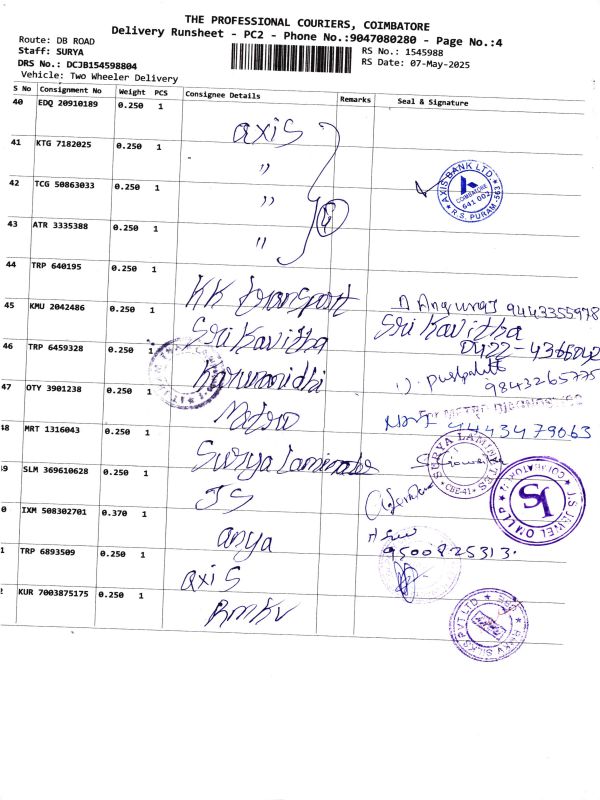 THE PROFESSIONAL COURIERS, COIMBATORE
Delivery Runsheet - PC2 - Phone No.:9047080280 - Page No.:4
Route: DB ROAD
RS No.: 1545988
Staff: SURYA
RS Date: 07-May-2025
DRS No.: DCJB154598804
Vehicle: Two Wheeler Delivery
S No Consignment No Weight PCS Consignee Details Remarks Seal & Signature
40 EDQ 20910189 0.250 1 axis
41 KTG 7182025 0.250 1 "
AXIS BANK LTD. COIMBATORE 641 002 R.S. PURAM-563
42 TCG 50863033 0.250 1 "
43 ATR 3335388 0.250 1 " 4
44 TRP 640195 0.250 1 KK transport 9443355978
45 KMU 2042486 0.250 1 Sri Kavitha Sri Kavitha
0422-4366042
46 TRP 6459328 0.250 1 Karunanidhi
9843265775
47 OTY 3901238 1 Metro 9443479063
48 MRT 1316043 0.250 1 Surya Laminates
SURYA LAMINATES CBE-41
49 SLM 369610628 0.250 1 JS
JS
0 IXM 508302701 0.370 1 anya
9500825313.
1 TRP 6893509 0.250 1 axis
2 KUR 7003875175 0.250 1 RMKV
RMKV SILKS PVT LTD